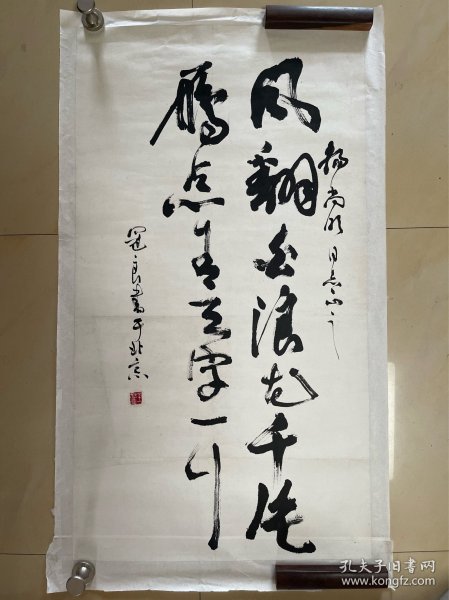 杨尚同志之
风翻白浪花千片
鴈点青天字一行
良书于北京
孔夫子旧书网
www.kongfz.com